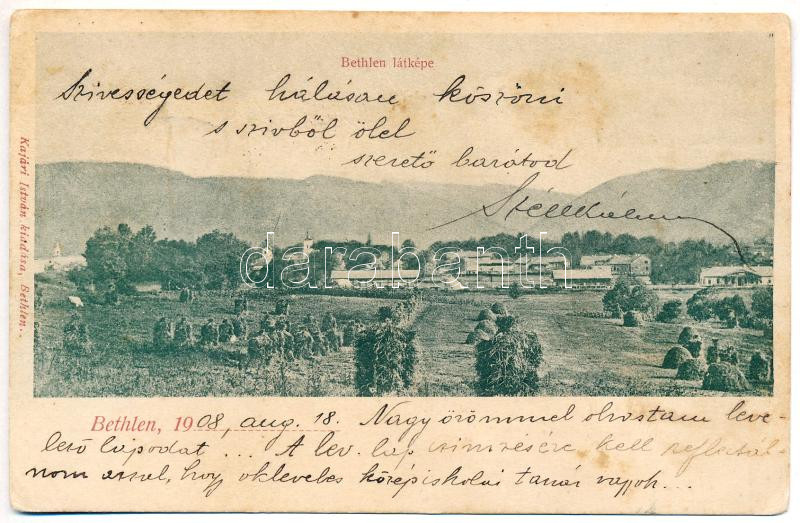 Bethlen látképe
Szivességedet hálásan köszöni
s szivből ölel
szerető barátod
Kajári István kiadása, Bethlen.
darabanth
Bethlen, 1908, aug. 18. Nagy örömmel olvastam leve-
lező lapodat ... A lev. lap czimzésére kell reflectál-
nom azzal, hogy okleveles középiskolai tanár vagyok...